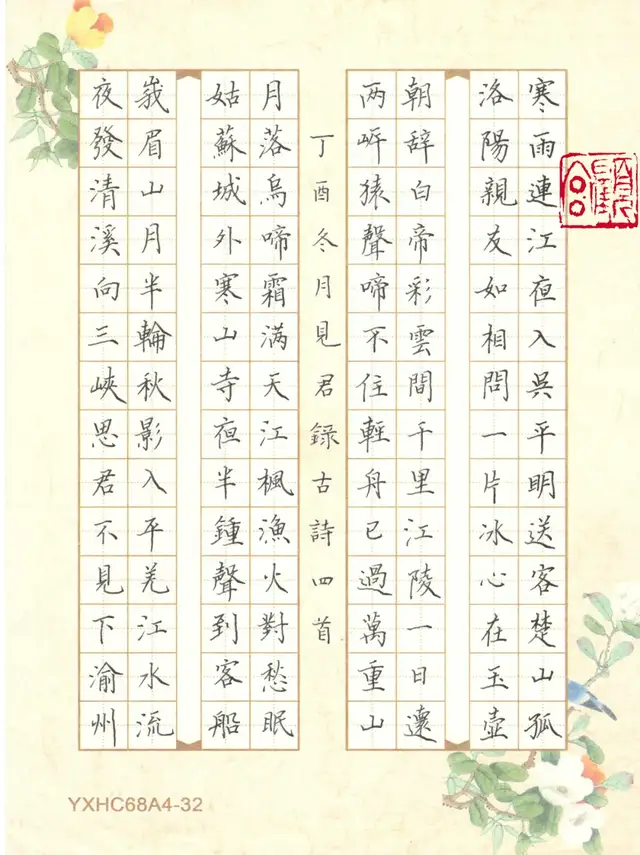 寒雨連江夜入吳平明送客楚山孤
洛陽親友如相問一片冰心在玉壺
朝辞白帝彩雲間千里江陵一日還
两岍猿聲啼不住輕舟已過萬重山
丁酉冬月見君錄古詩四首
月落烏啼霜满天江楓漁火對愁眠
姑蘇城外寒山寺夜半鍾聲到客船
峩眉山月半輪秋影入平羌江水流
夜發清溪向三峽思君不見下渝州
YXHC68A4-32